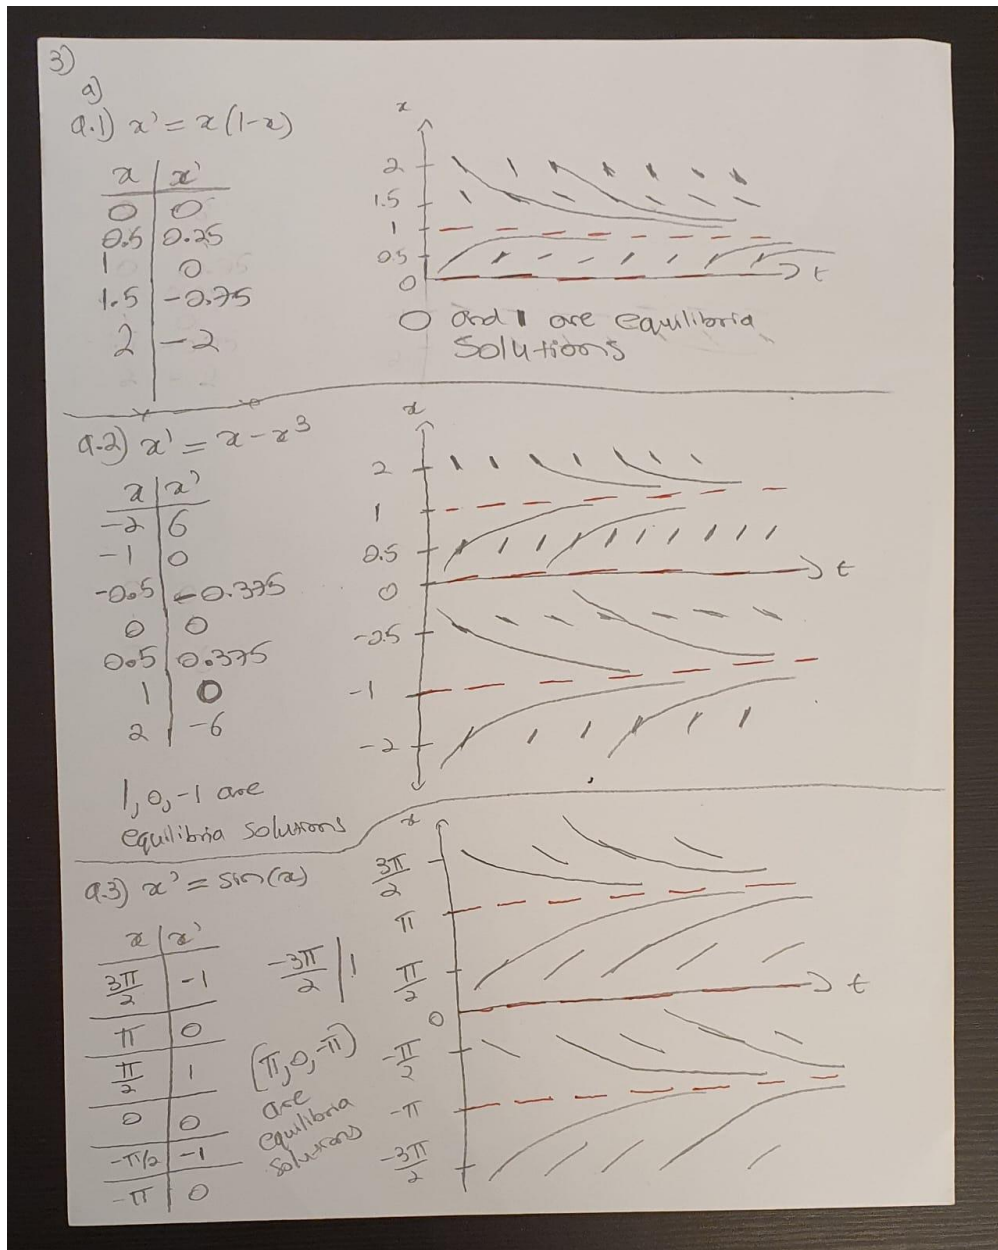 3)
a)
a.1) x' = x(1-x)
x | x'
0 | 0
0.5 | 0.25
1 | 0
1.5 | -0.75
2 | -2
x
2
1.5
1
0.5
0
t
0 and 1 are equilibria
solutions
a.2) x' = x - x³
x | x'
-2 | 6
-1 | 0
-0.5 | -0.375
0 | 0
0.5 | 0.375
1 | 0
2 | -6
1, 0, -1 are
equilibria solutions
x
2
1
0.5
0
t
-0.5
-1
-2
a.3) x' = sin(x)
x | x'
3π/2 | -1
π | 0
π/2 | 1
0 | 0
-π/2 | -1
-π | 0
-3π/2 | 1
(π, 0, -π)
are
equilibria
solutions
x
3π/2
π
π/2
0
t
-π/2
-π
-3π/2